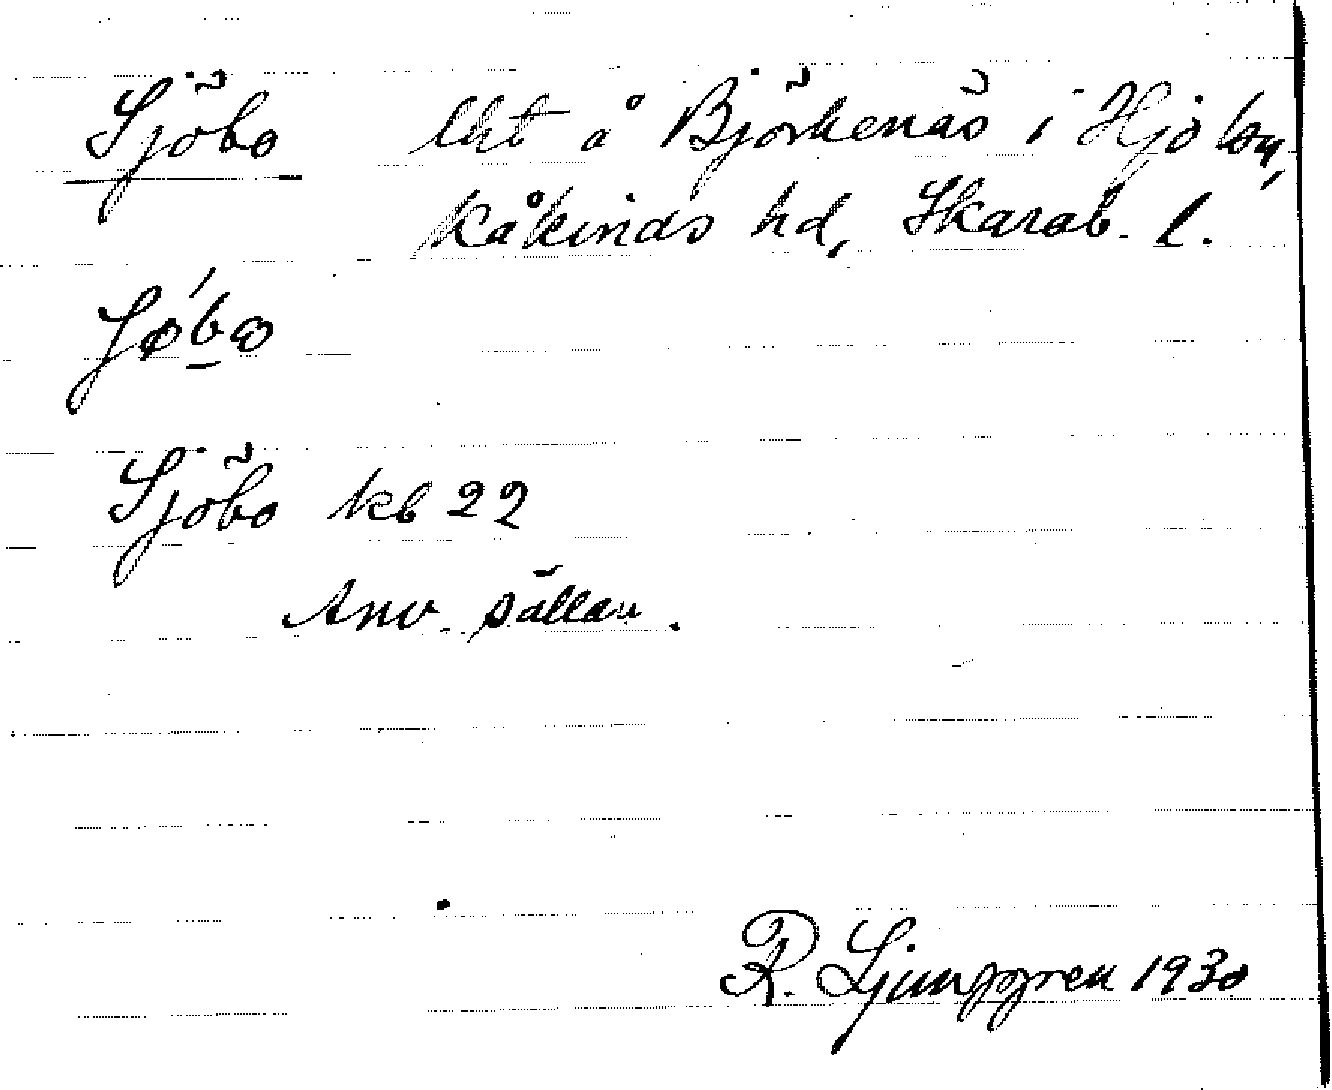 Sjöbo lht å Björkenäs i Hjo lsn,
Kåkinds hd, Skarab. l.
Sjöbo kb 22
Anv. sällan.
R. Ljunggren 1930